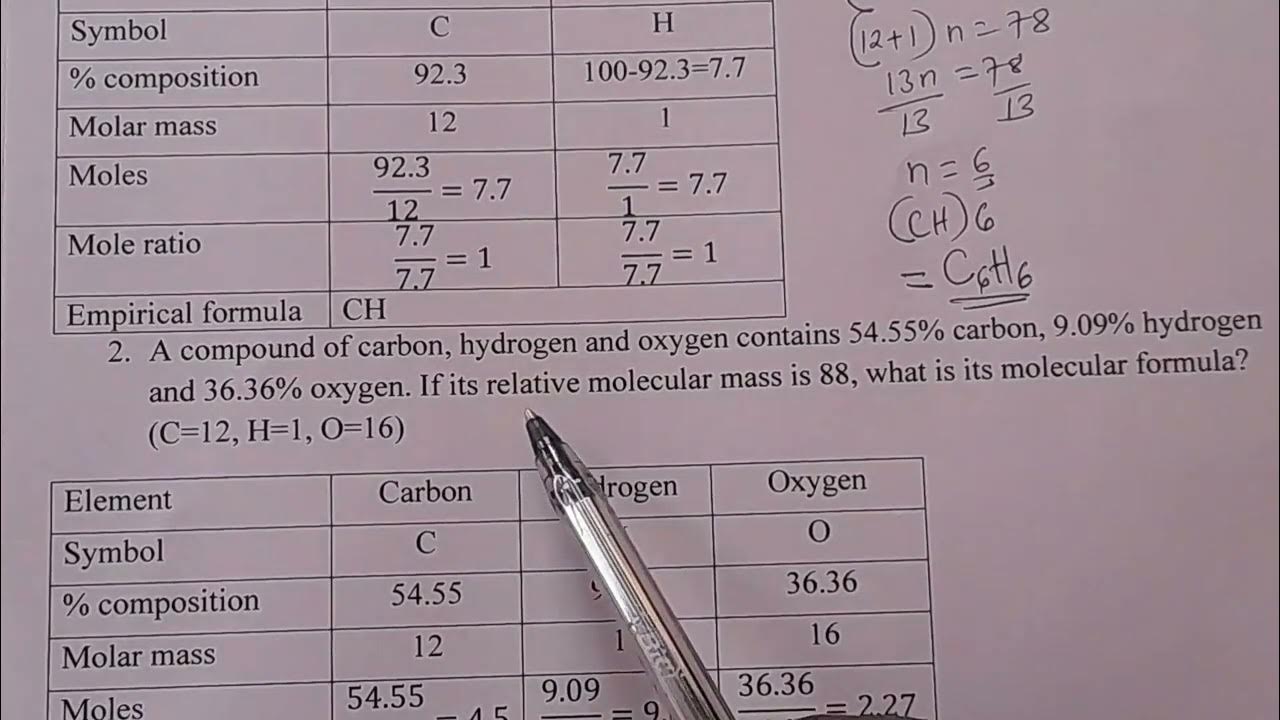 Symbol C H
% composition 92.3 100-92.3=7.7
Molar mass 12 1
Moles 92.3/12 = 7.7 7.7/1 = 7.7
Mole ratio 7.7/7.7 = 1 7.7/7.7 = 1
Empirical formula CH
(12+1) n = 78
13n/13 = 78/13
n = 6
(CH)6
= C₆H₆
2. A compound of carbon, hydrogen and oxygen contains 54.55% carbon, 9.09% hydrogen
and 36.36% oxygen. If its relative molecular mass is 88, what is its molecular formula?
(C=12, H=1, O=16)
Element Carbon Oxygen
Symbol C O
% composition 54.55 36.36
Molar mass 12 1 16
Moles 54.55 = 4.5 9.09 = 9. 36.36 = 2.27
BiC